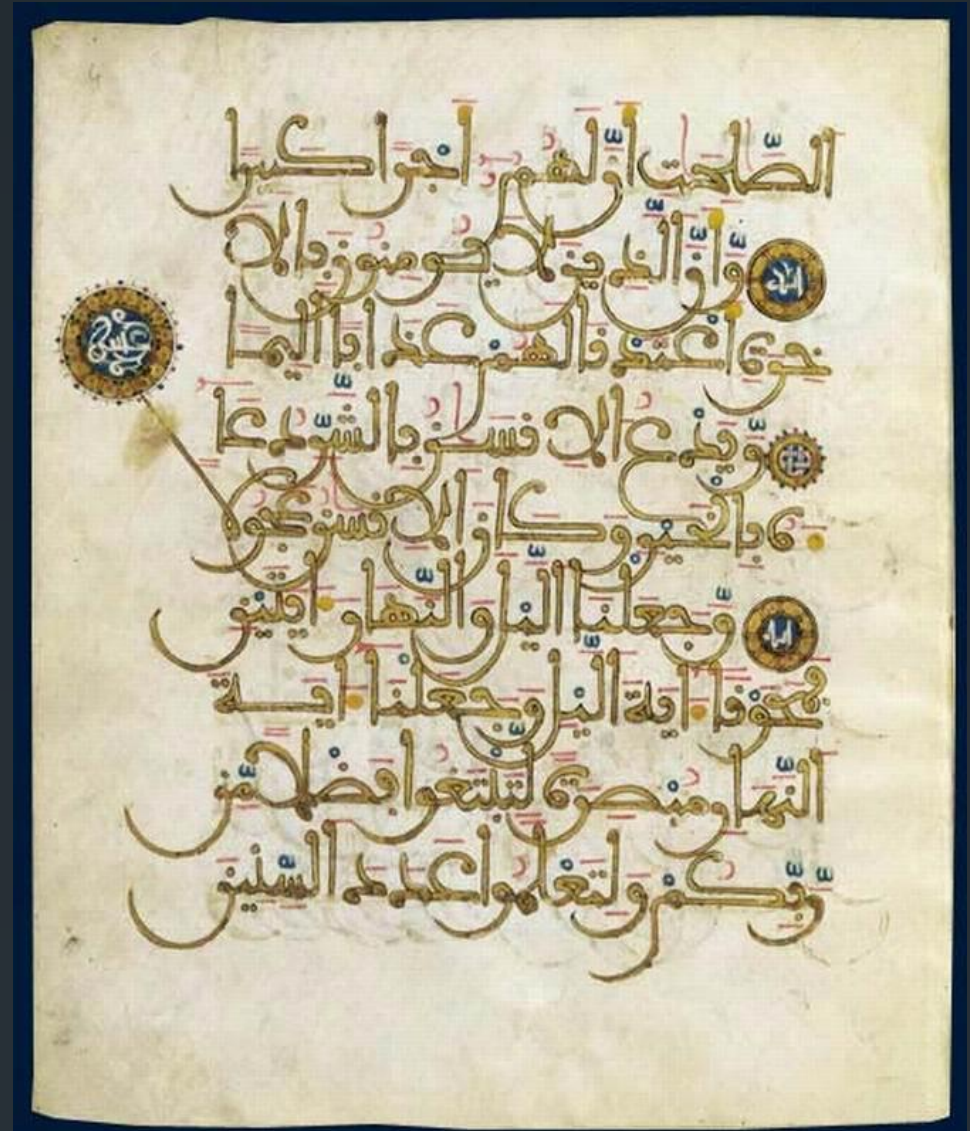 الصّٰلحٰت أنّ لهم أجرا كبيرا
وأنّ الذين لا يومنون بالا
خرة أعتدنا لهم عذابا أليما
ويدع الانسٰن بالشّرّ دعا
ءه بالخير وكان الانسٰن عجولا
وجعلنا اليل والنّهار ءايتين
فمحونا ءاية اليل وجعلنا ءاية
النّهار مبصرة لتبتغوا فضلا مّن
رّبّكم ولتعلموا عدد السّنين